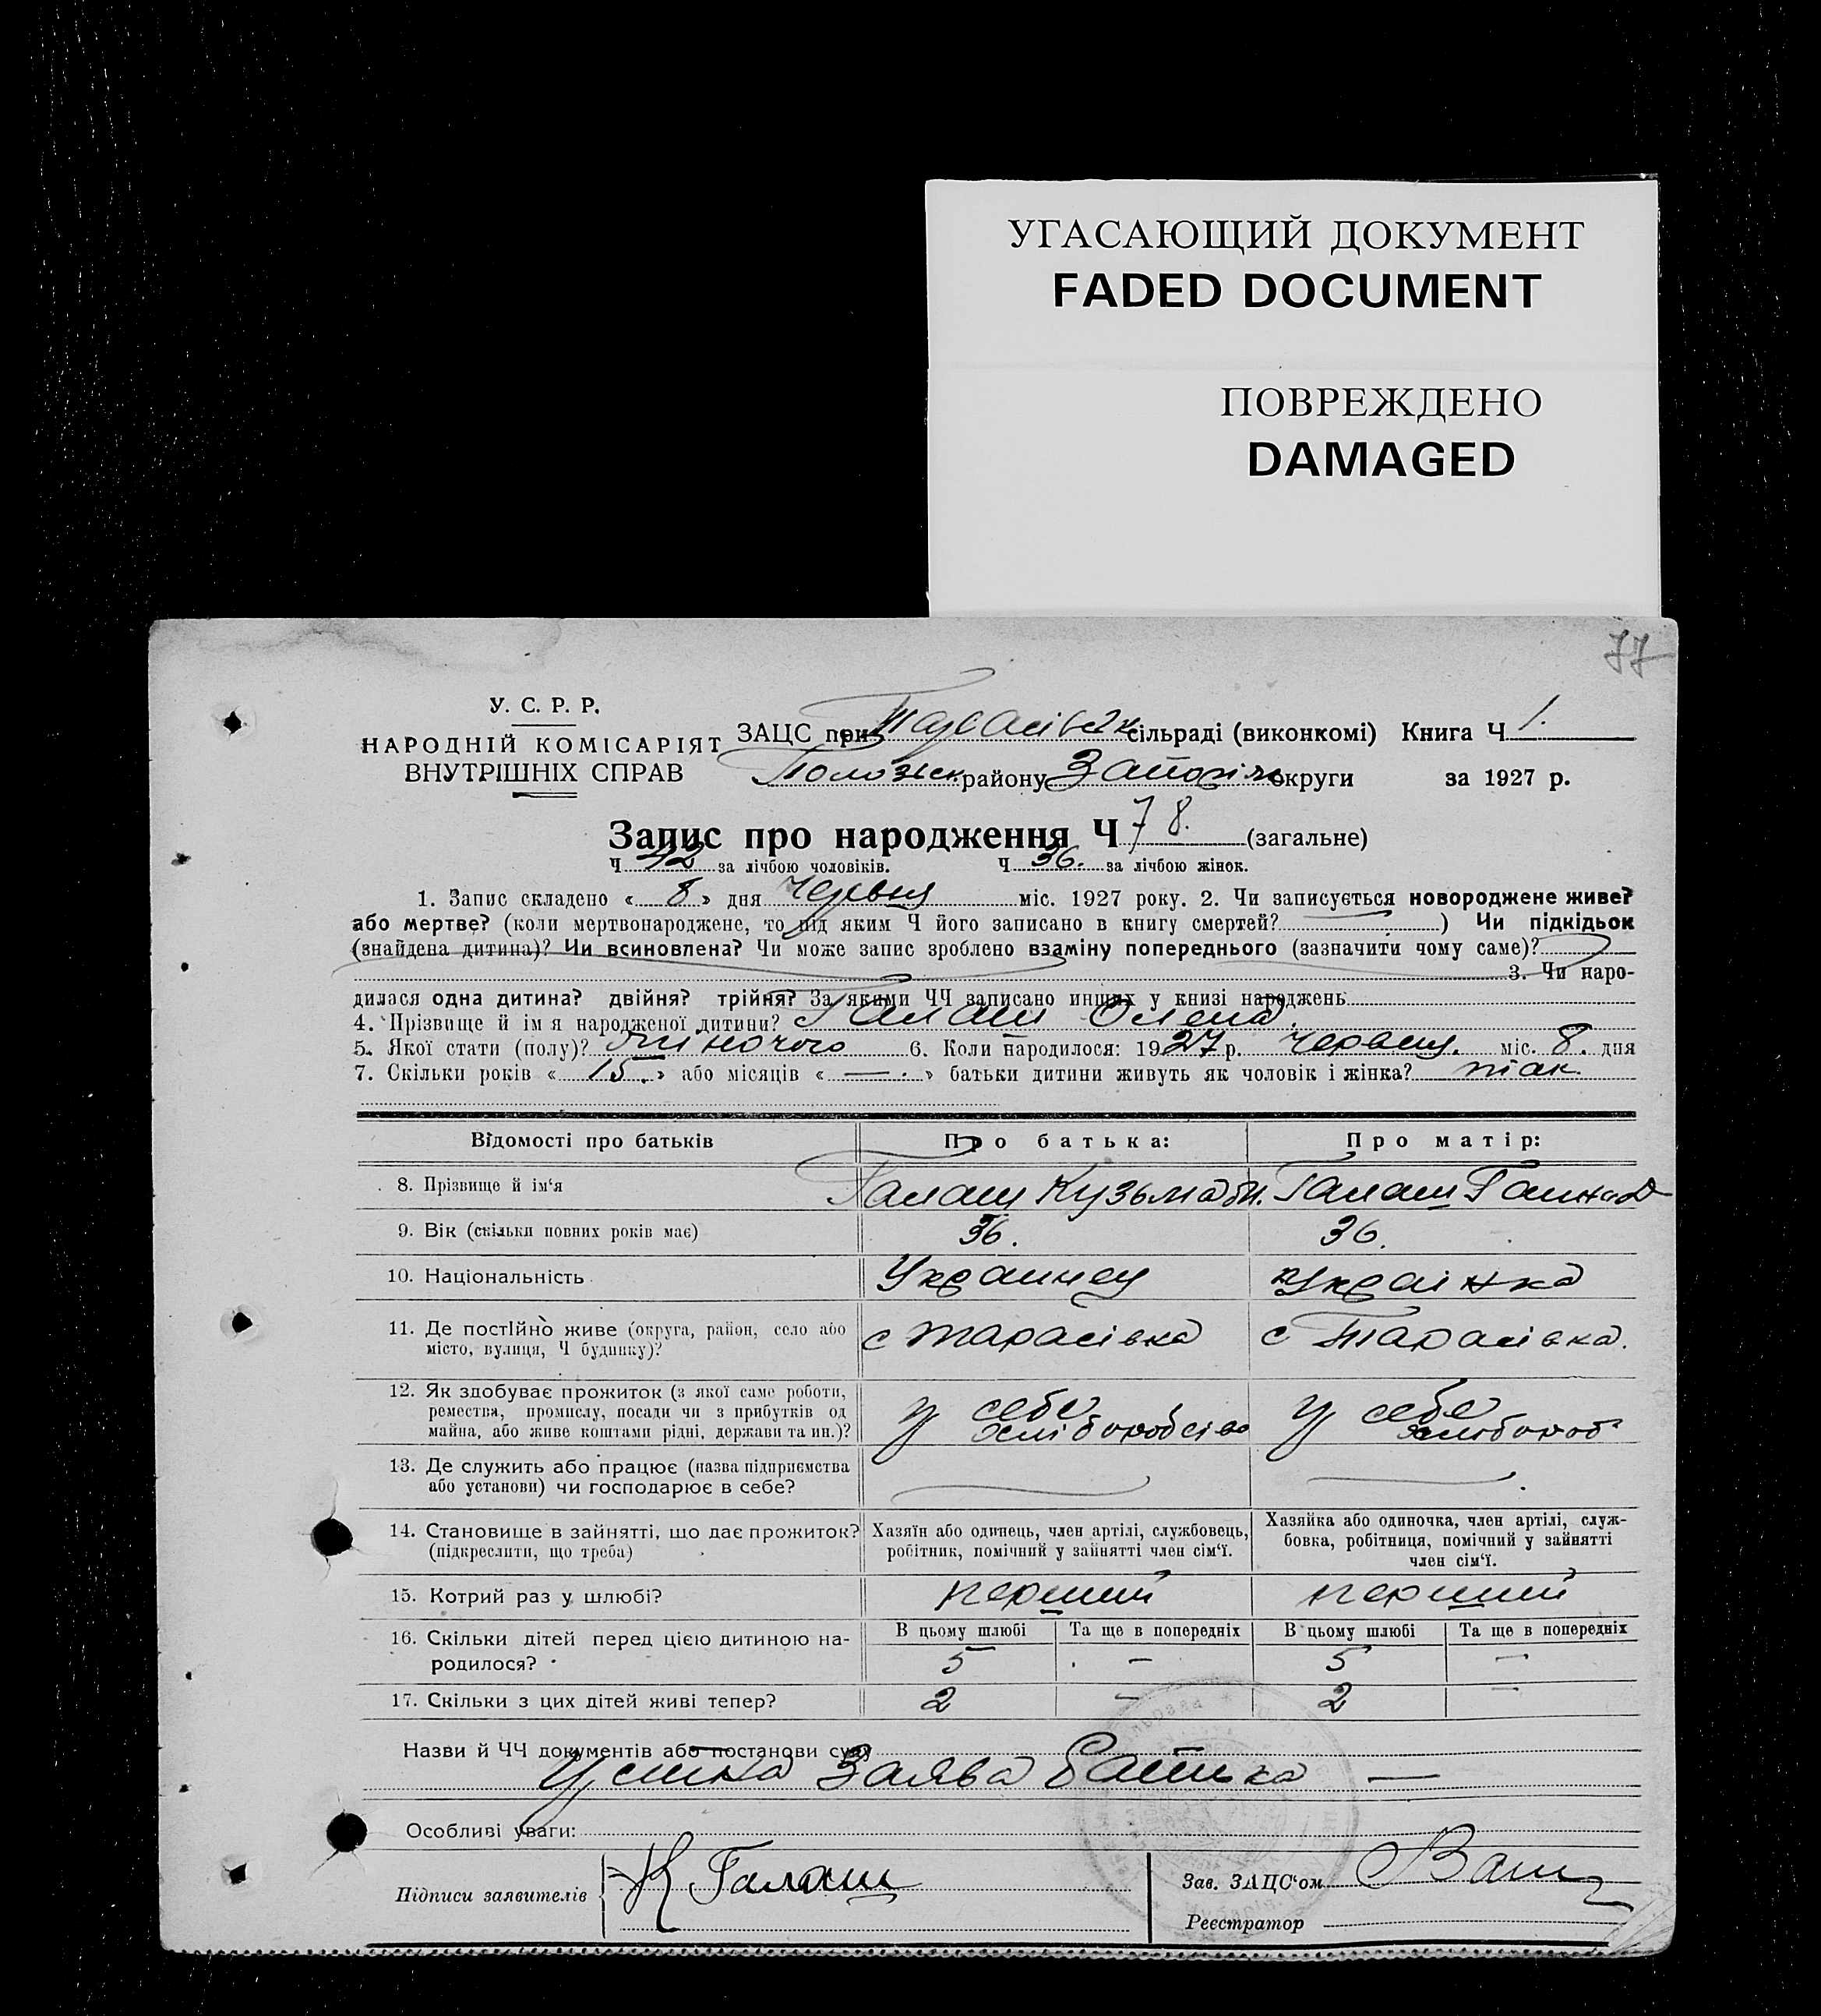 УГАСАЮЩИЙ ДОКУМЕНТ
FADED DOCUMENT
ПОВРЕЖДЕНО
DAMAGED
77
У. С. Р. Р.
НАРОДНІЙ КОМІСАРІЯТ
ВНУТРІШНІХ СПРАВ
ЗАЦС при Тарасівськ сільраді (виконкомі) Книга Ч 1.
Положск. району Запоріж округи за 1927 р.
Запис про народження Ч 78. (загальне)
Ч 42 за лічбою чоловіків. Ч 36. за лічбою жінок.
1. Запис складено « 8 » дня червня міс. 1927 року. 2. Чи записується новороджене живе?
або мертве? (коли мертвонароджене, то під яким Ч його записано в книгу смертей? ) Чи підкідьок
(знайдена дитина)? Чи всиновлена? Чи може запис зроблено взаміну попереднього (зазначити чому саме)?
3. Чи наро-
дилася одна дитина? двійня? трійня? За якими ЧЧ записано инших у книзі народжень
4. Прізвище й ім я народженої дитини? Галаш Олена.
5. Якої стати (полу)? жіночого 6. Коли народилося: 1927 р. червня. міс. 8. дня
7. Скільки років « 15. » або місяців « — . » батьки дитини живуть як чоловік і жінка? так
Відомості про батьків Про батька: Про матір:
8. Прізвище й ім‘я Галаш Кузьма Галаш Ганна
9. Вік (скільки повних років має) 36. 36.
10. Національність Украинец Українка
11. Де постійно живе (округа, район, село або
місто, вулиця, Ч будинку)? с Тарасівка с Тарасівка.
12. Як здобуває прожиток (з якої саме роботи,
ремества, промислу, посади чи з прибутків од
майна, або живе коштами рідні, держави та ин.)? У себе хліборобство У себе хлібороб
13. Де служить або працює (назва підприємства
або установи) чи господарює в себе?
14. Становище в зайнятті, що дає прожиток?
(підкреслити, що треба)
Хазяїн або одинець, член артілі, службовець,
робітник, помічний у зайнятті член сім‘ї.
Хазяйка або одиночка, член артілі, служ-
бовка, робітниця, помічний у зайнятті
член сім‘ї.
15. Котрий раз у шлюбі? перший перший
16. Скільки дітей перед цією дитиною на-
родилося?
В цьому шлюбі Та ще в попередніх В цьому шлюбі Та ще в попередніх
5 — 5 —
17. Скільки з цих дітей живі тепер? 2 — 2 —
Назви й ЧЧ документів або постанови суду
Устна Заява батька —
Особливі уваги:
Підписи заявителів К Галаш
Зав. ЗАЦС‘ом
Реєстратор